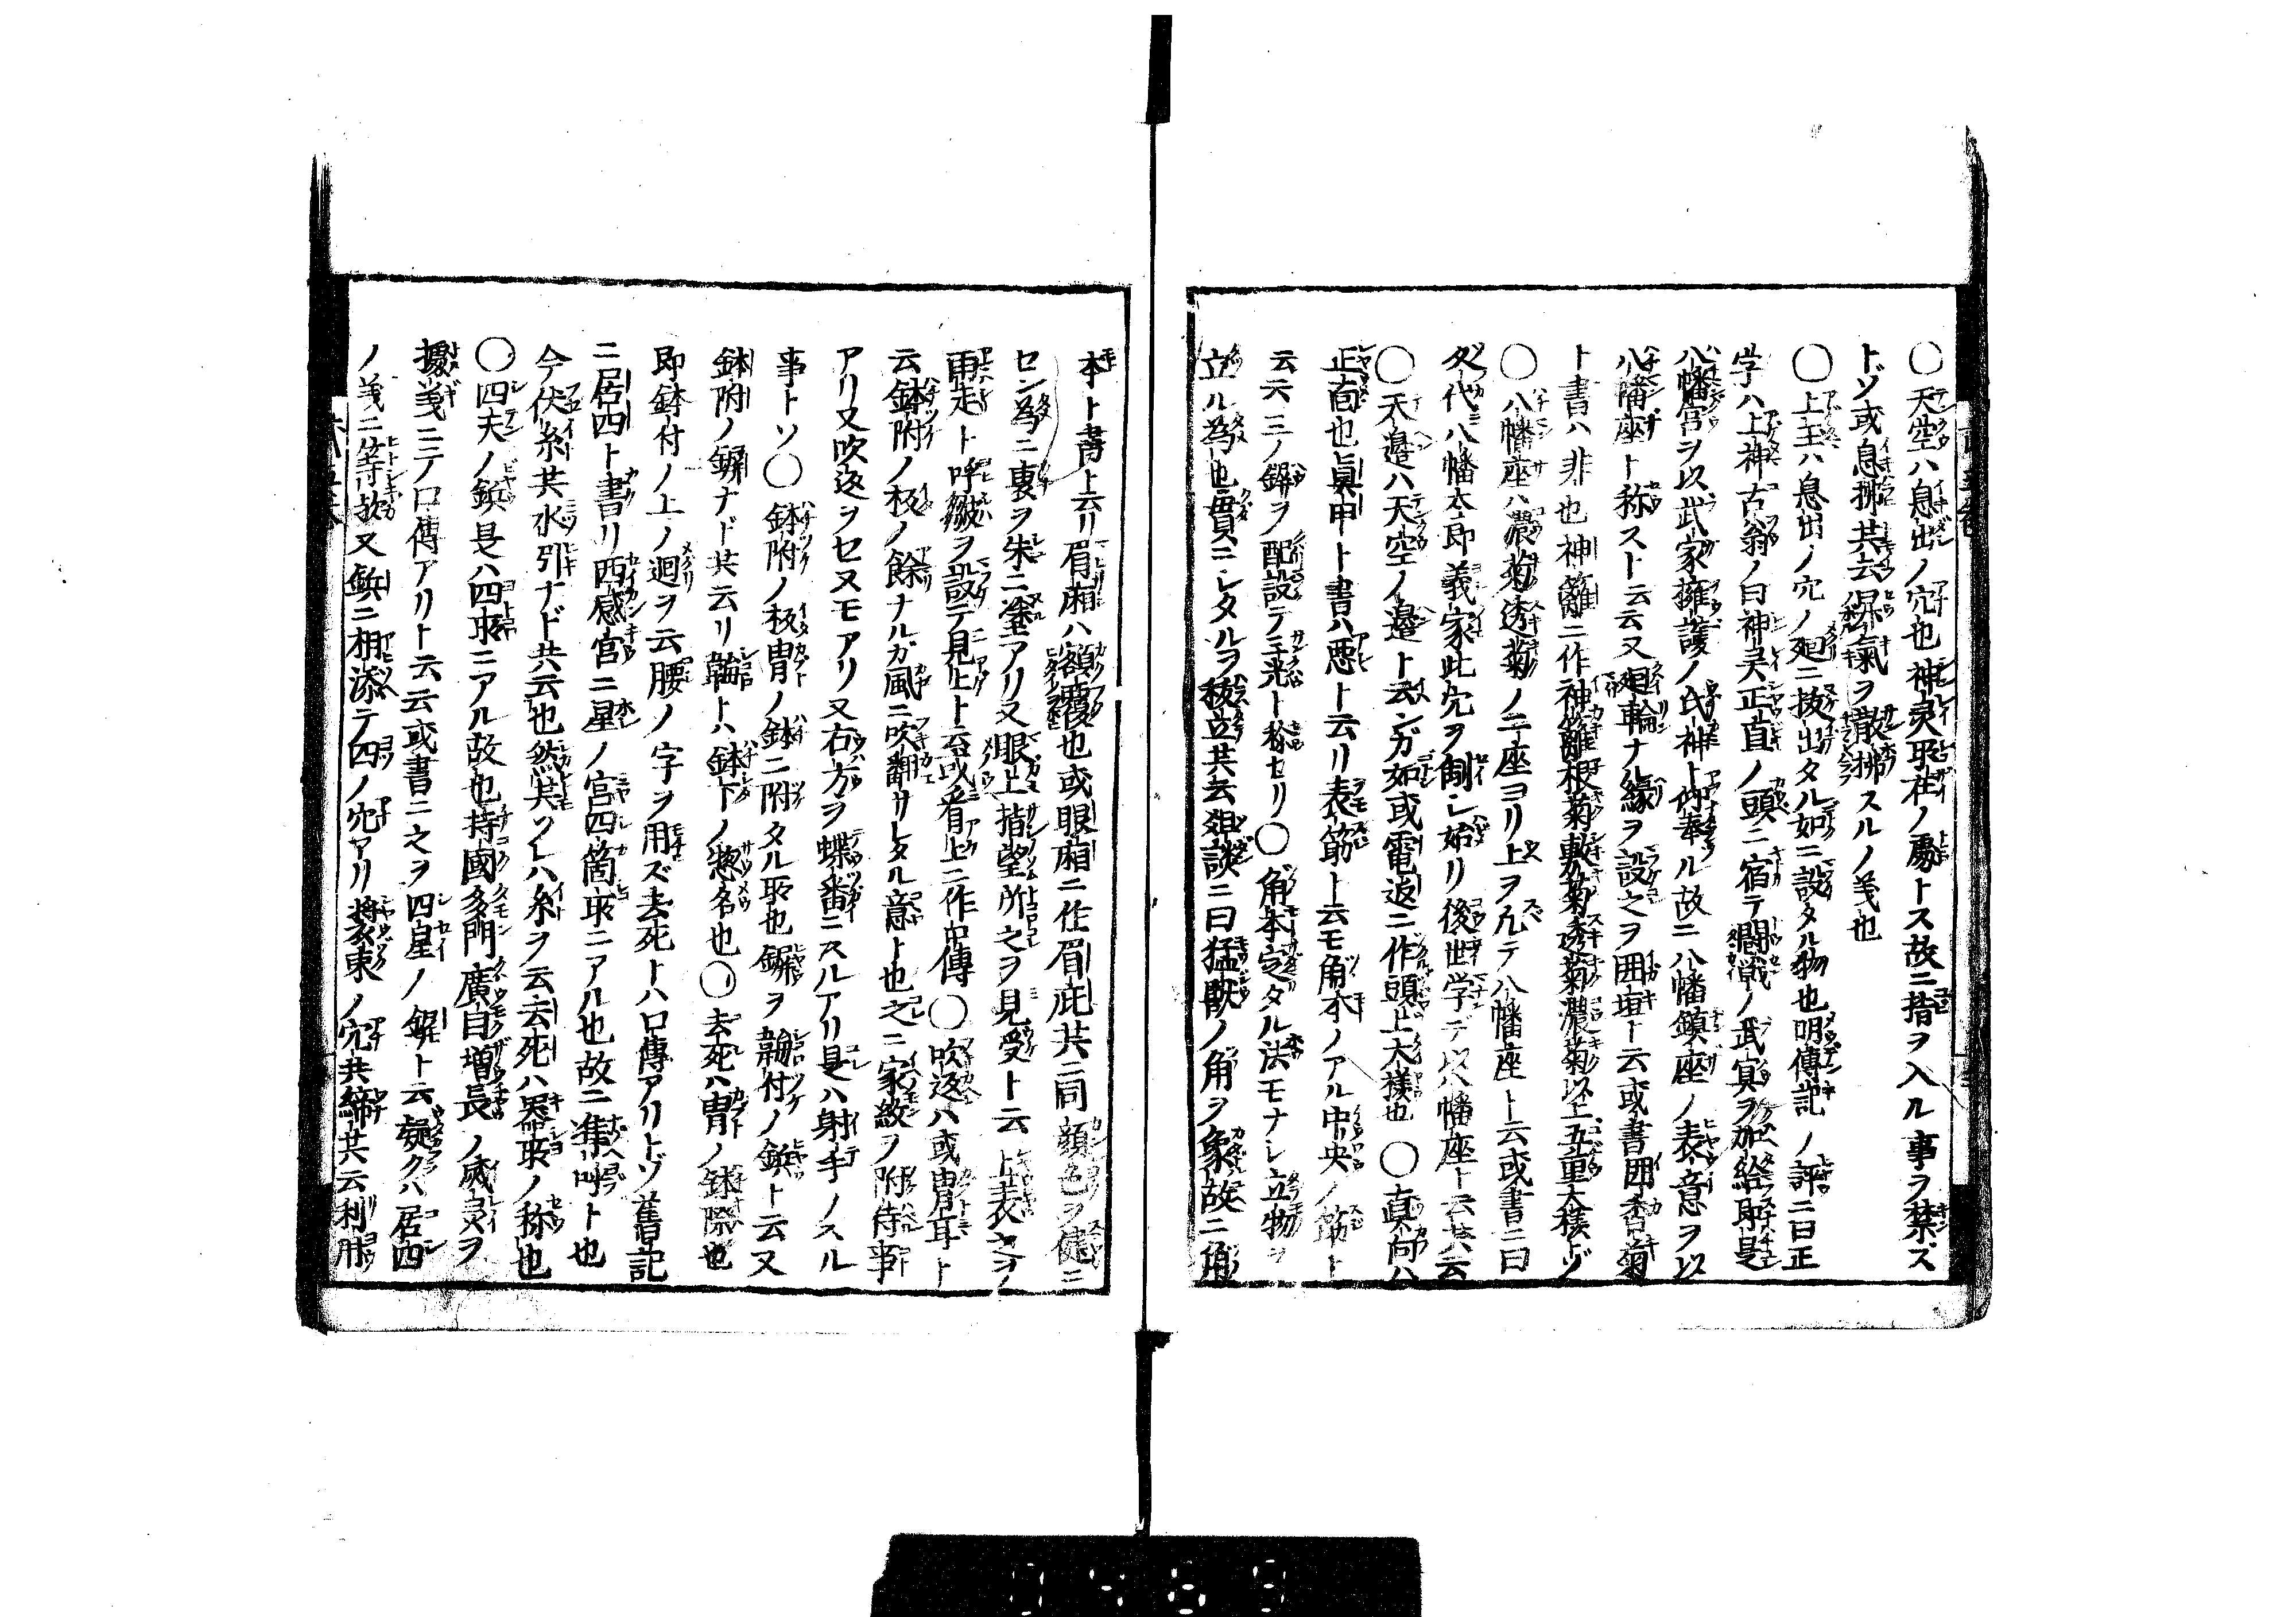 ○天空ハ息出ノ穴也神灵所在ノ處トス故ニ指ヲ入ル事ヲ禁ズ
トゾ或息拂共云濕氣ヲ散拂スルノ義也
○上玉ハ息出ノ穴ノ廻ニ抜出タル如ニ設タル物也明傳記ノ評ニ曰正
学ハ上神古翁ノ曰神灵正直ノ頭ニ宿テ闘戦ノ武冥ヲ加給所是
八幡宮ヲ以武家擁護ノ氏神ト仰奉ル故ニ八幡鎮座ノ表意ヲ以
八幡座ト称スト云云又廻輪ナル縁ヲ設之ヲ囲垣ト云或書囲香菊
ト書ハ非也神籬ニ作神籬根菊敷菊透菊濃菊以上五重大檨トゾ
○八幡座ハ濃菊透菊ノ二座ヨリ上ヲ凡テ八幡座ト云或書ニ曰
タ代八幡太郎義家此穴ヲ制シ始リ後世学テ以八幡座ト云共云
○天邉ハ天空ノ邉ト云ンガ如或電返ニ作頭上大檨也○真向ハ
正面也眞甲ト書ハ悪ト云リ表筋ト云モ角本ノアル中央ノ筋ト
云云三ノ鎩ヲ配設テ三光ト称セリ○角本定タル法モナシ立物ヲ
立ル為也貫ニシタルヲ秡立共云爼談ニ曰猛獣ノ角ヲ象故ニ角
本ト書ト云リ眉廂ハ額覆也或眼廂ニ作眉庇共ニ同顔色ヲ健ニ
セン為ニ裏ヲ朱ニ塗アリ又眼上指望所之ヲ見受ト云上表之ヲ
雨走ト呼皺ヲ設テ見上ト云或看上ニ作古傳○吹返ハ或冑耳ト
云鉢附ノ板ノ餘ナルガ風ニ吹翻サレタル意ト也之ニ家紋ヲ附侍事
アリ又吹返ヲセヌモアリ又右方ヲ蝶番ニスルアリ是ハ射手ノスル
事トソ○鉢附ノ板冑ノ鉢ニ附タル所也鎩ヲ鞴付ノ鋲ト云又
鉢附ノ鎩ナド共云リ鞴トハ鉢下ノ惣名也○去死ハ冑ノ鉢際也
即鉢付ノ上ノ廻ヲ云腰ノ字ヲ用ズ去死トハ口傳アリトゾ舊記
ニ居四ト書リ西感宮ニ星ノ宮四箇所ニアル也故ニ準叫ト也
今伏糸共水引ナド共云也然其ソレハ糸ヲ云去死ハ器所ノ称也
○四天ノ鋲是ハ四所ニアル故也持國多門廣目増長ノ威灵ヲ
擬義ニテ口傳アリト云云或書ニ之ヲ四皇ノ鎩ト云疑クハ居四
ノ義ニ等故又鋲ニ相添テ四ノ穴アリ裝束ノ穴共締共云利用